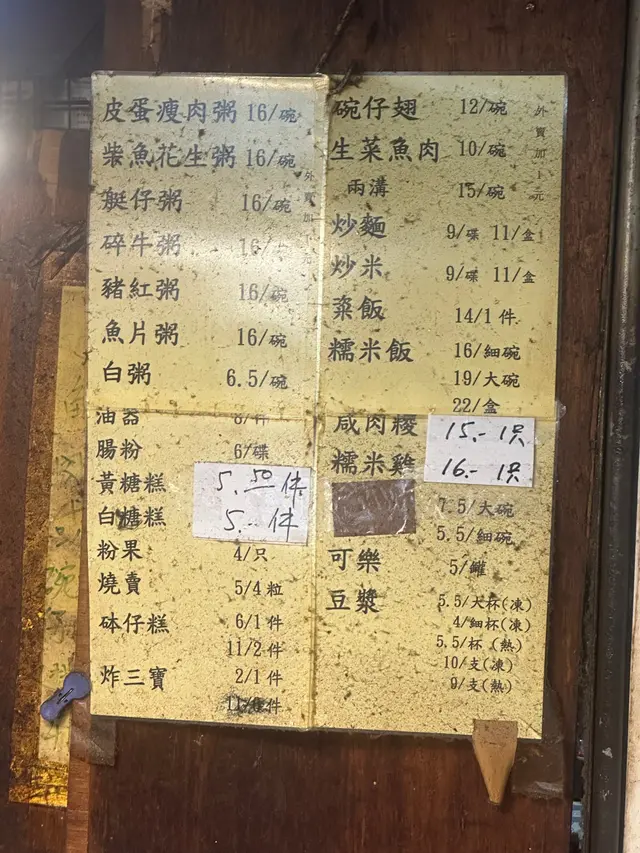 皮蛋瘦肉粥 16/碗
柴魚花生粥 16/碗
艇仔粥 16/碗
碎牛粥 16/
豬紅粥 16/碗
魚片粥 16/碗
白粥 6.5/碗
外賣加
元
油器 8/件
腸粉 6/碟
黃糖糕 5.50件
白糖糕 5.-件
粉果 4/只
燒賣 5/4粒
砵仔糕 6/1件
11/2件
炸三寶 2/1件
11/6件
碗仔翅 12/碗
生菜魚肉 10/碗
兩溝 15/碗
炒麵 9/碟 11/盒
炒米 9/碟 11/盒
粢飯 14/1件
糯米飯 16/細碗
19/大碗
22/盒
外賣加1元
咸肉糉 15.-1只
糯米雞 16.-1只
7.5/大碗
5.5/細碗
可樂 5/罐
豆漿 5.5/大杯(凍)
4/細杯(凍)
5.5/杯(熱)
10/支(凍)
9/支(熱)